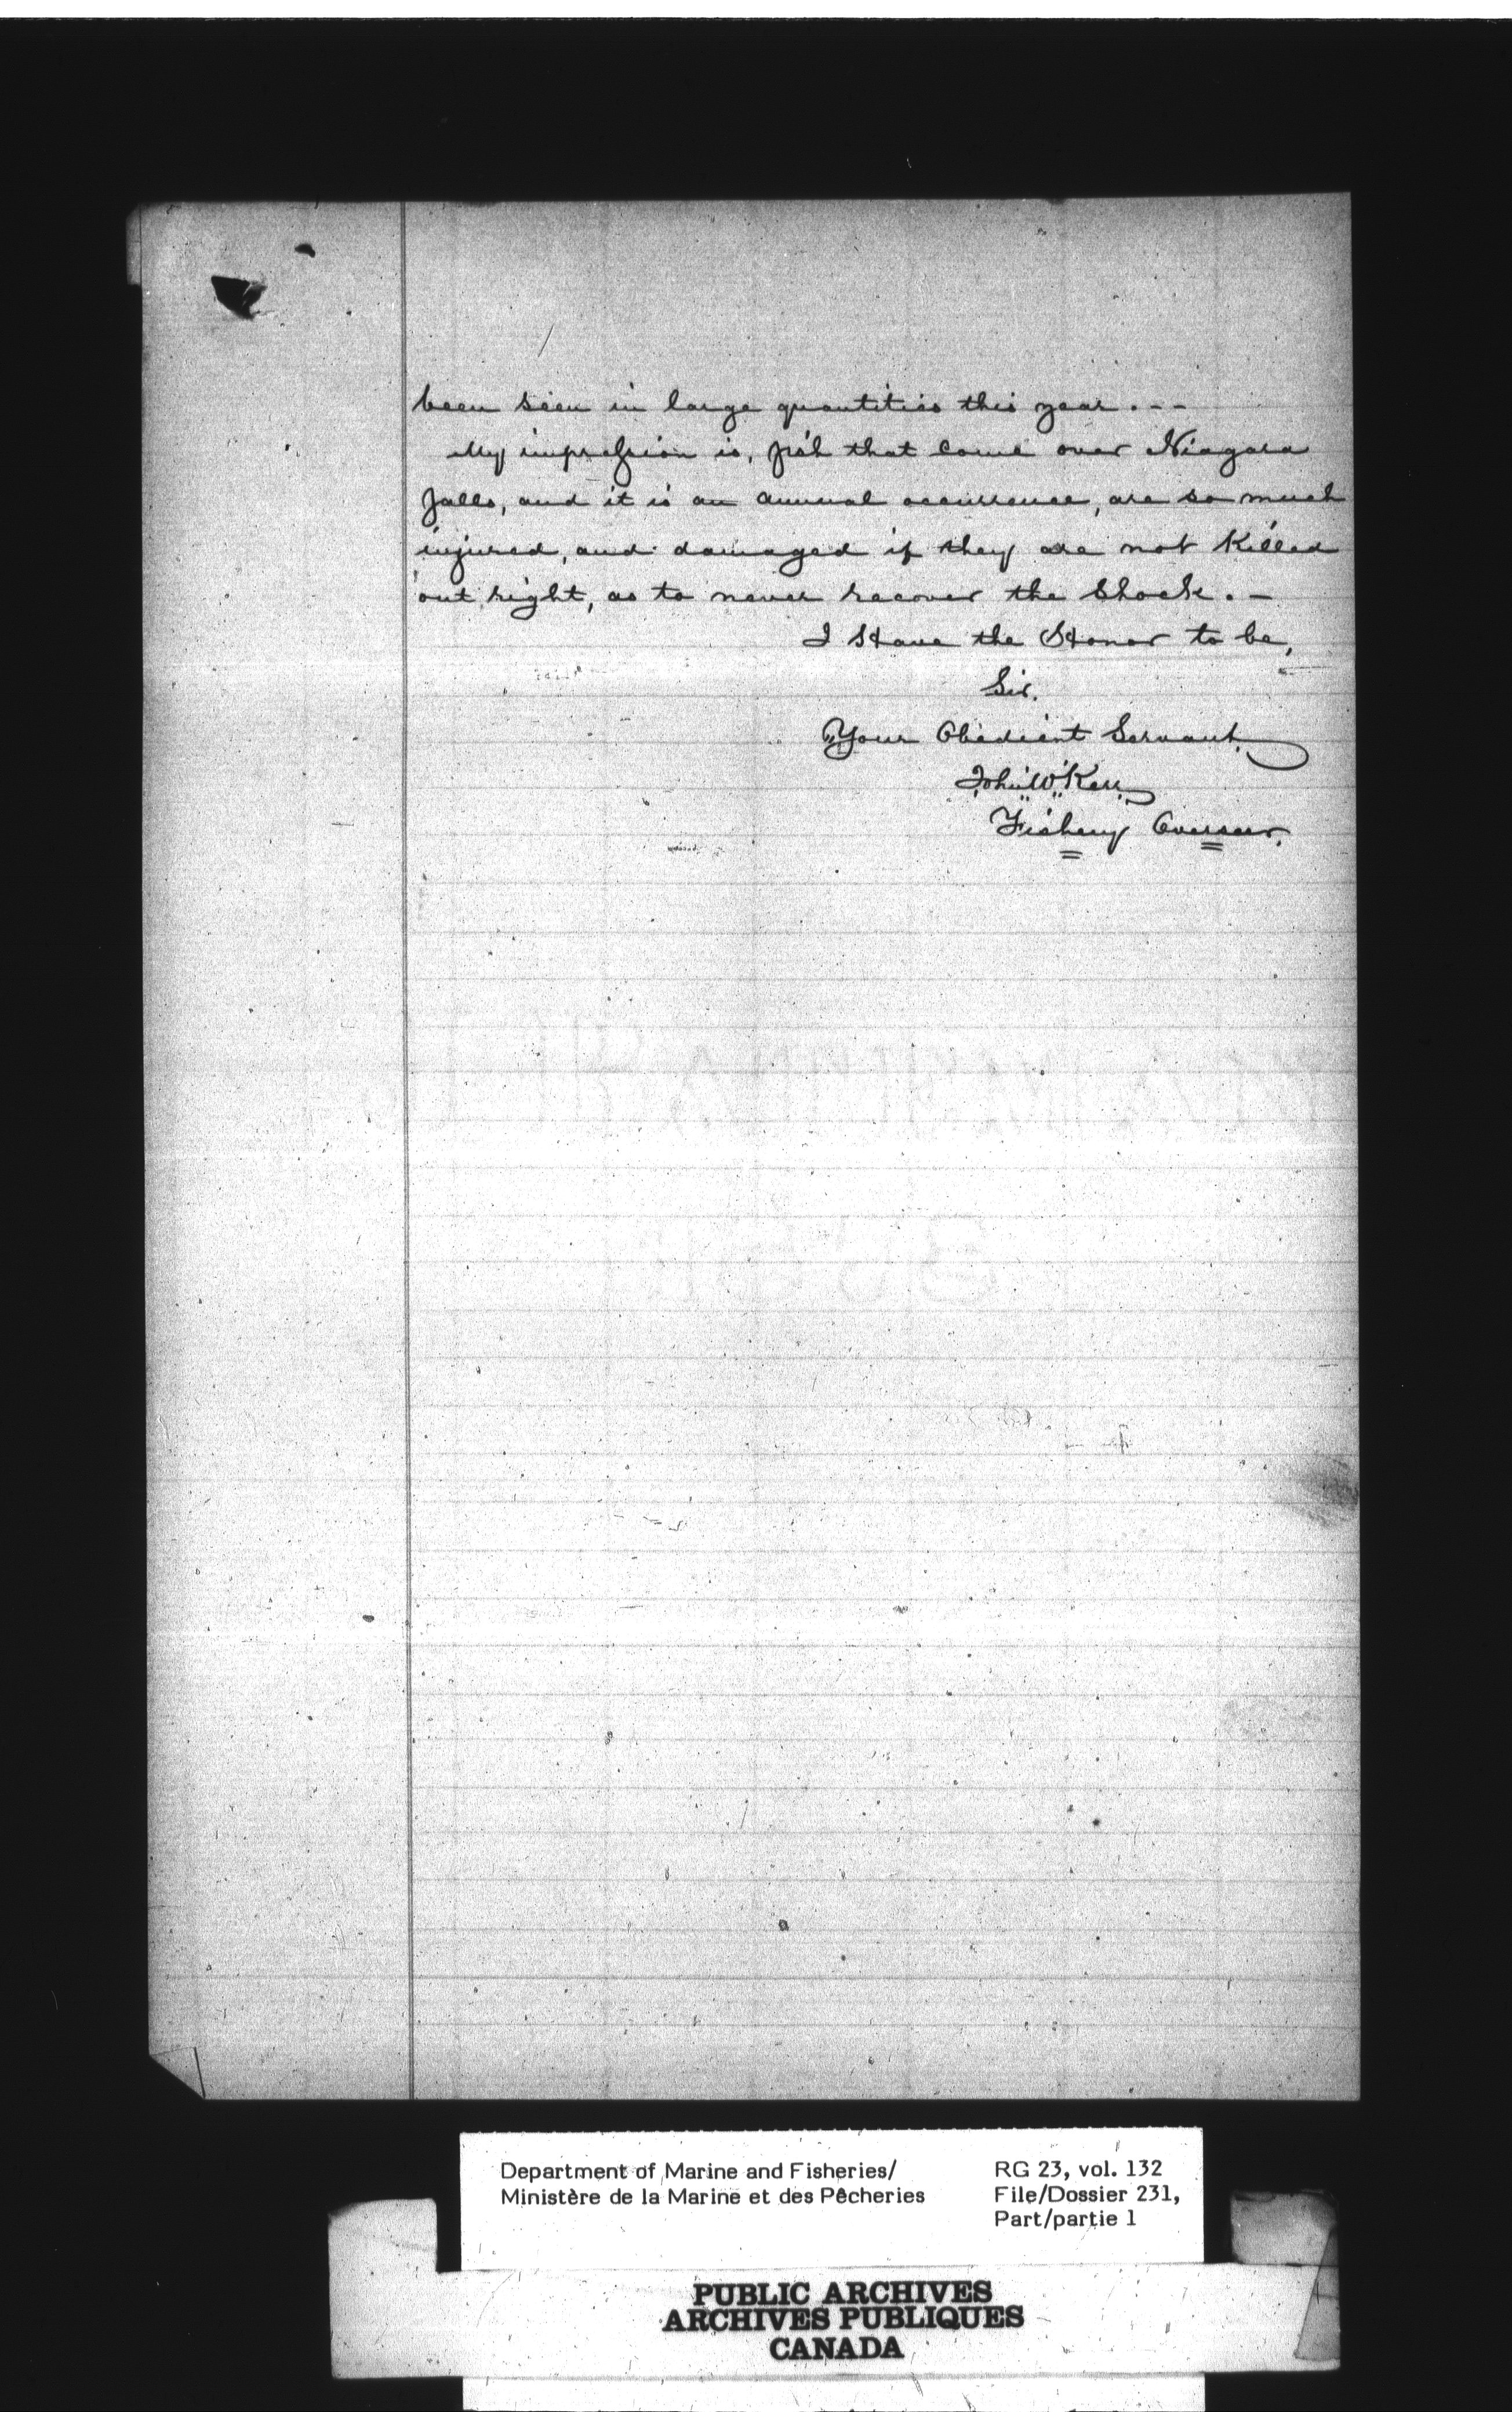 been seen in large quantities this year. - -
My impression is, fish that come over Niagara
falls, and it is an annual occurrence, are so much
injured, and damaged if they are not Killed
out right, as to never recover the Shock. -
I Have the Honor to be,
Sir.
Your Obedient Servant
John W Kerr
Fishery Overseer.
Department of Marine and Fisheries/
Ministère de la Marine et des Pêcheries
RG 23, vol. 132
File/Dossier 231,
Part/partie 1
PUBLIC ARCHIVES
ARCHIVES PUBLIQUES
CANADA